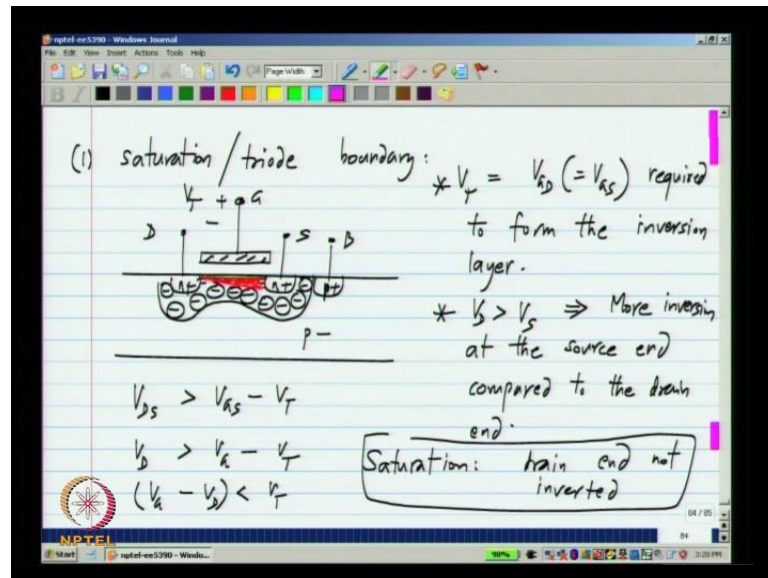 nptel-ee5390 - Windows Journal
File Edit View Insert Actions Tools Help
Page Width
B I
(1) saturation / triode boundary:
V_T + G
-
D S B
n+ n+ p+
p-
V_DS > V_GS - V_T
V_D > V_G - V_T
(V_G - V_D) < V_T
* V_T = V_GD (= V_GS) required
to form the inversion
layer.
* V_D > V_S ⇒ More inversion
at the source end
compared to the drain
end.
Saturation: drain end not
inverted
NPTEL
84 / 85
84
Start nptel-ee5390 - Windo...
98% 3:20 PM